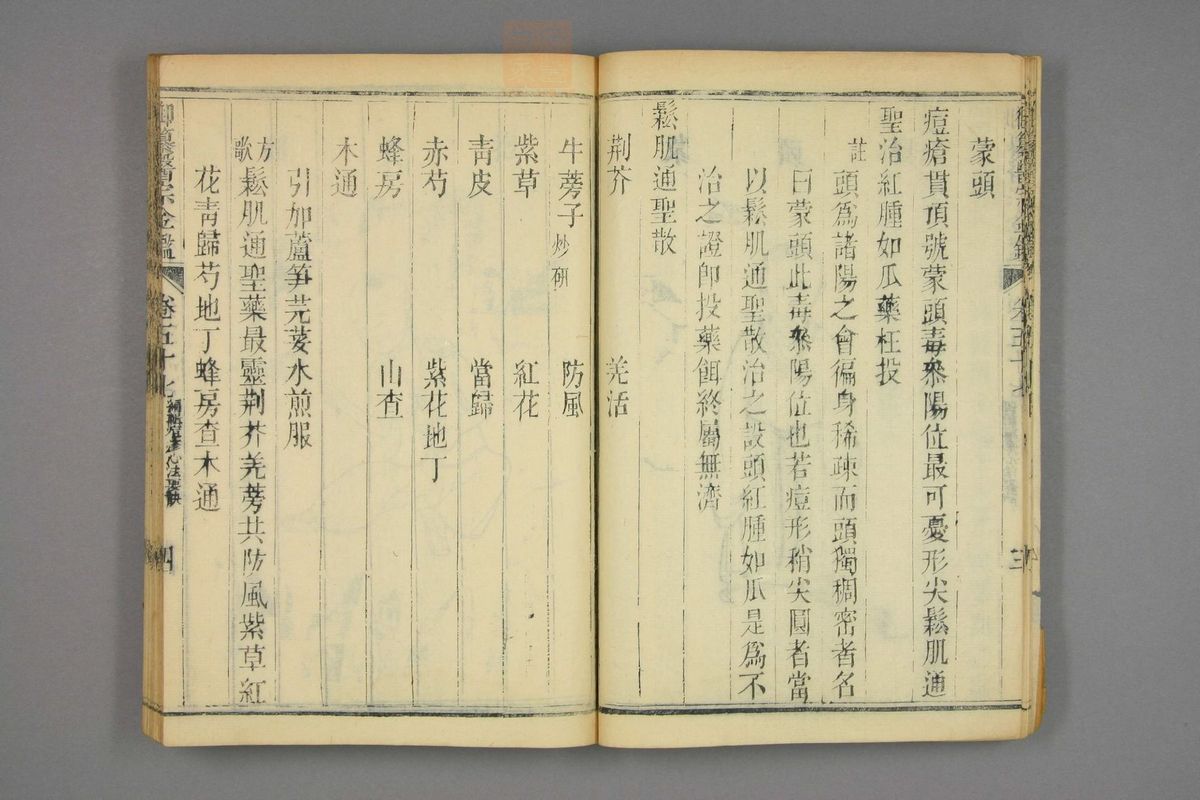 蒙頭
痘瘡貫頂號蒙頭毒叅陽位最可憂形尖鬆肌通
聖治紅腫如瓜藥枉投
註頭爲諸陽之會徧身稀疎而頭獨稠密者名
曰蒙頭此毒叅陽位也若痘形稍尖圓者當
以鬆肌通聖散治之設頭紅腫如瓜是爲不
治之證卽投藥餌終屬無濟
鬆肌通聖散
荆芥 羌活
牛蒡子炒研 防風
紫草 紅花
靑皮 當歸
赤芍 紫花地丁
蜂房 山查
木通
引加蘆笋芫荽水煎服
方歌鬆肌通聖藥最靈荆芥羌蒡共防風紫草紅
花靑歸芍地丁蜂房查木通
御纂醫宗金鑑 卷五十七 四
御纂醫宗金鑑 卷五十七 三